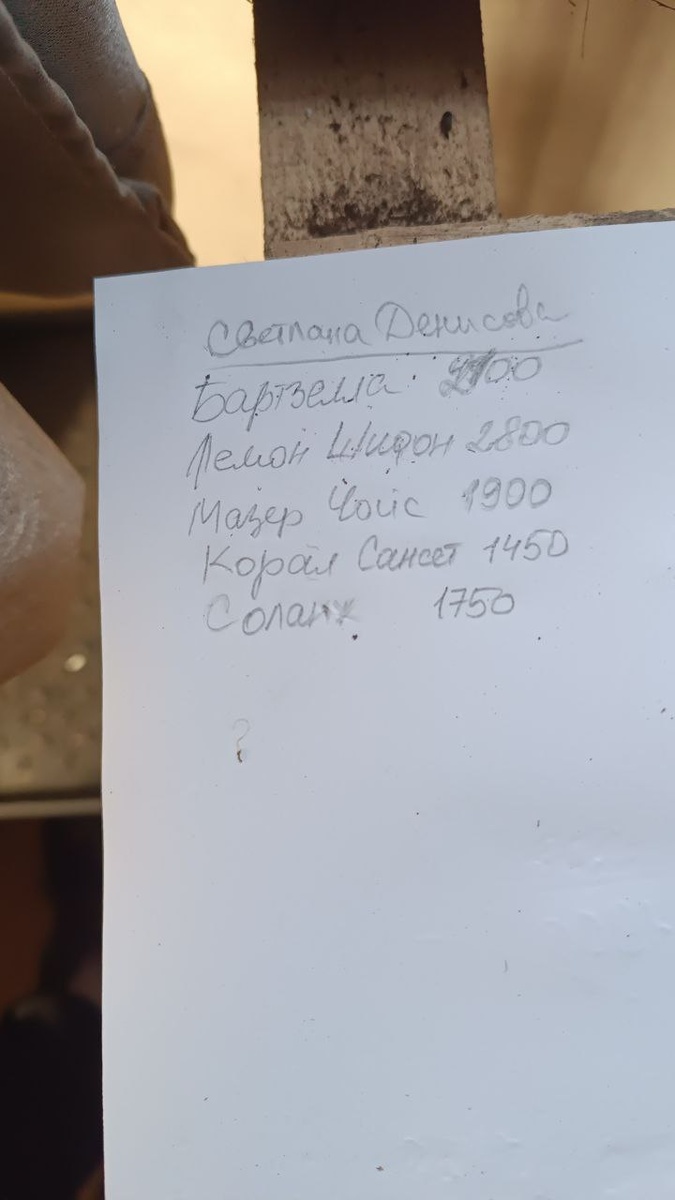 Светлана Денисова
Бартзелла
Лемон Шифон 2800
Мазер Чойс 1900
Корал Сансет 1450
Соланж 1750